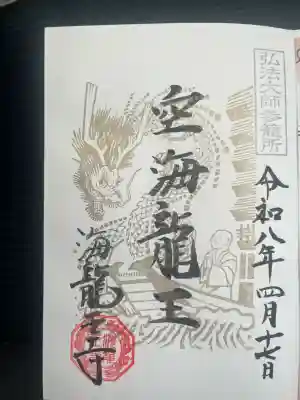 弘法大師参籠所
令和八年四月十七日
空海龍王
海龍王寺